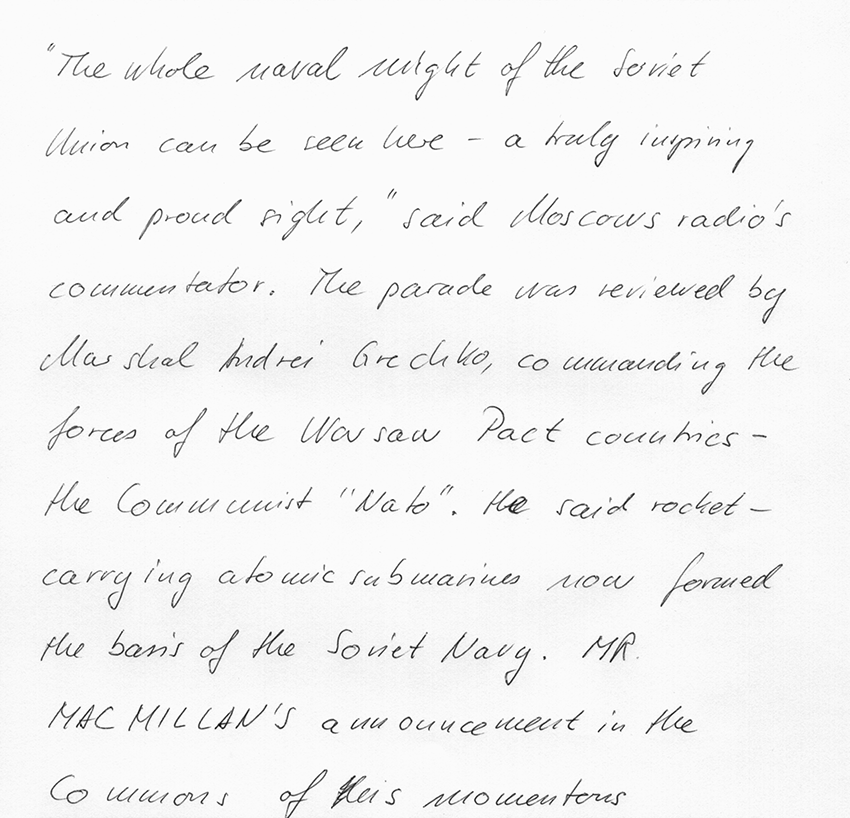 "The whole naval might of the Soviet
Union can be seen here - a truly inspiring
and proud sight," said Moscows radio's
commentator. The parade was reviewed by
Marshal Andrei Grechko, commanding the
forces of the Warsaw Pact countries -
the Communist "Nato". He said rocket-
carrying atomic submarines now formed
the basis of the Soviet Navy. MR.
MACMILLAN'S announcement in the
Commons of this momentous